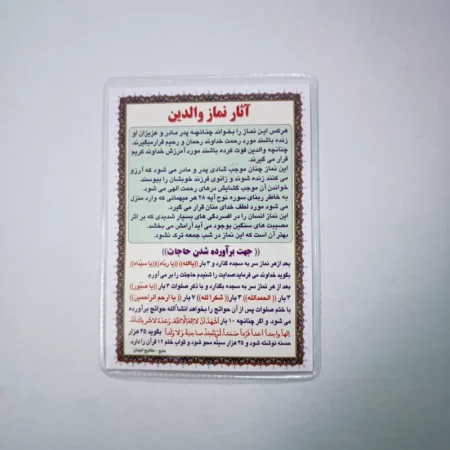 آثار نماز والدین
هرکس این نماز را بخواند چنانچه پدر مادر و عزیزان او
زنده باشند مورد رحمت خداوند رحمان و رحیم قرارمیگیرند
چنانچه والدین فوت کرده باشند مورد آمرزش خداوند کریم
قرار می گیرند.
این نماز چنان موجب شادی پدر و مادر می شود که آرزو
می کنند زنده شوند و زانوی فرزند خویشان را ببوسند
خواندن آن موجب گشایش درهای رحمت الهی می شود.
به خاطر ربنای سوره نوح آیه ۲۸ هر میهمانی که وارد منزل
می شود مورد لطف خدای منان قرار می گیرد.
این نماز انسان را در افسردگی های بسیار شدیدی که بر اثر
مصیبت های سنگین بوجود می آید آرامش می بخشد.
بهتر آن است که این نماز در شب جمعه ترک نشود.
(( جهت برآورده شدن حاجات))
بعد ازهر نماز سر به سجده گذارد و ۳ بار ((یاالله)) ((یا رباه)) ((یا سیداه))
بگوید خداوند می فرماید صدایت را شنیدم حاجتت را بر می آورم.
بعد از هر نماز سر به سجده بگذارد و با ذکر صلوات ۳ بار ((یا صبور))
۳ بار (( الحمدالله)) ۳ بار (( شکرا لله)) ۷ بار ((یا ارحم الراحمین))
با ختم صلوات پس از آن حوائج را بخواهد انشاالله حوائج برآورده
می شود. و اگر چنانچه ۱۰ بار اَشهَدُ اَن لا اِلهَ اِلَّا اللهُ وَحدَهُ لا شَریکَ لَه،
اِلهاً واحِداً اَحَداً فَرداً صَمَداً لَم یَتَّخِذ صاحِبَةً وَلا وَلَداً بگوید ۴۵ هزار
حسنه نوشته شود و ۴۵ هزار سیئه محو شود و ثواب ختم ۱۲ قرآن را دارد.
منبع : مفاتیح الجنان